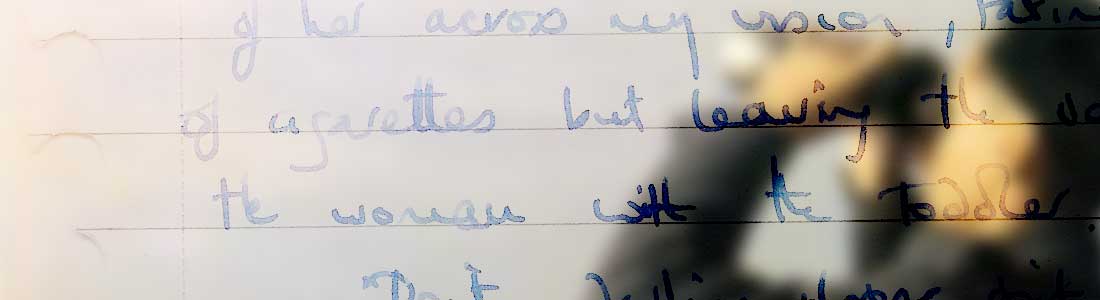 of her across my vision, 
of cigarettes but leaving the
the woman with the Toddler.
"Don't